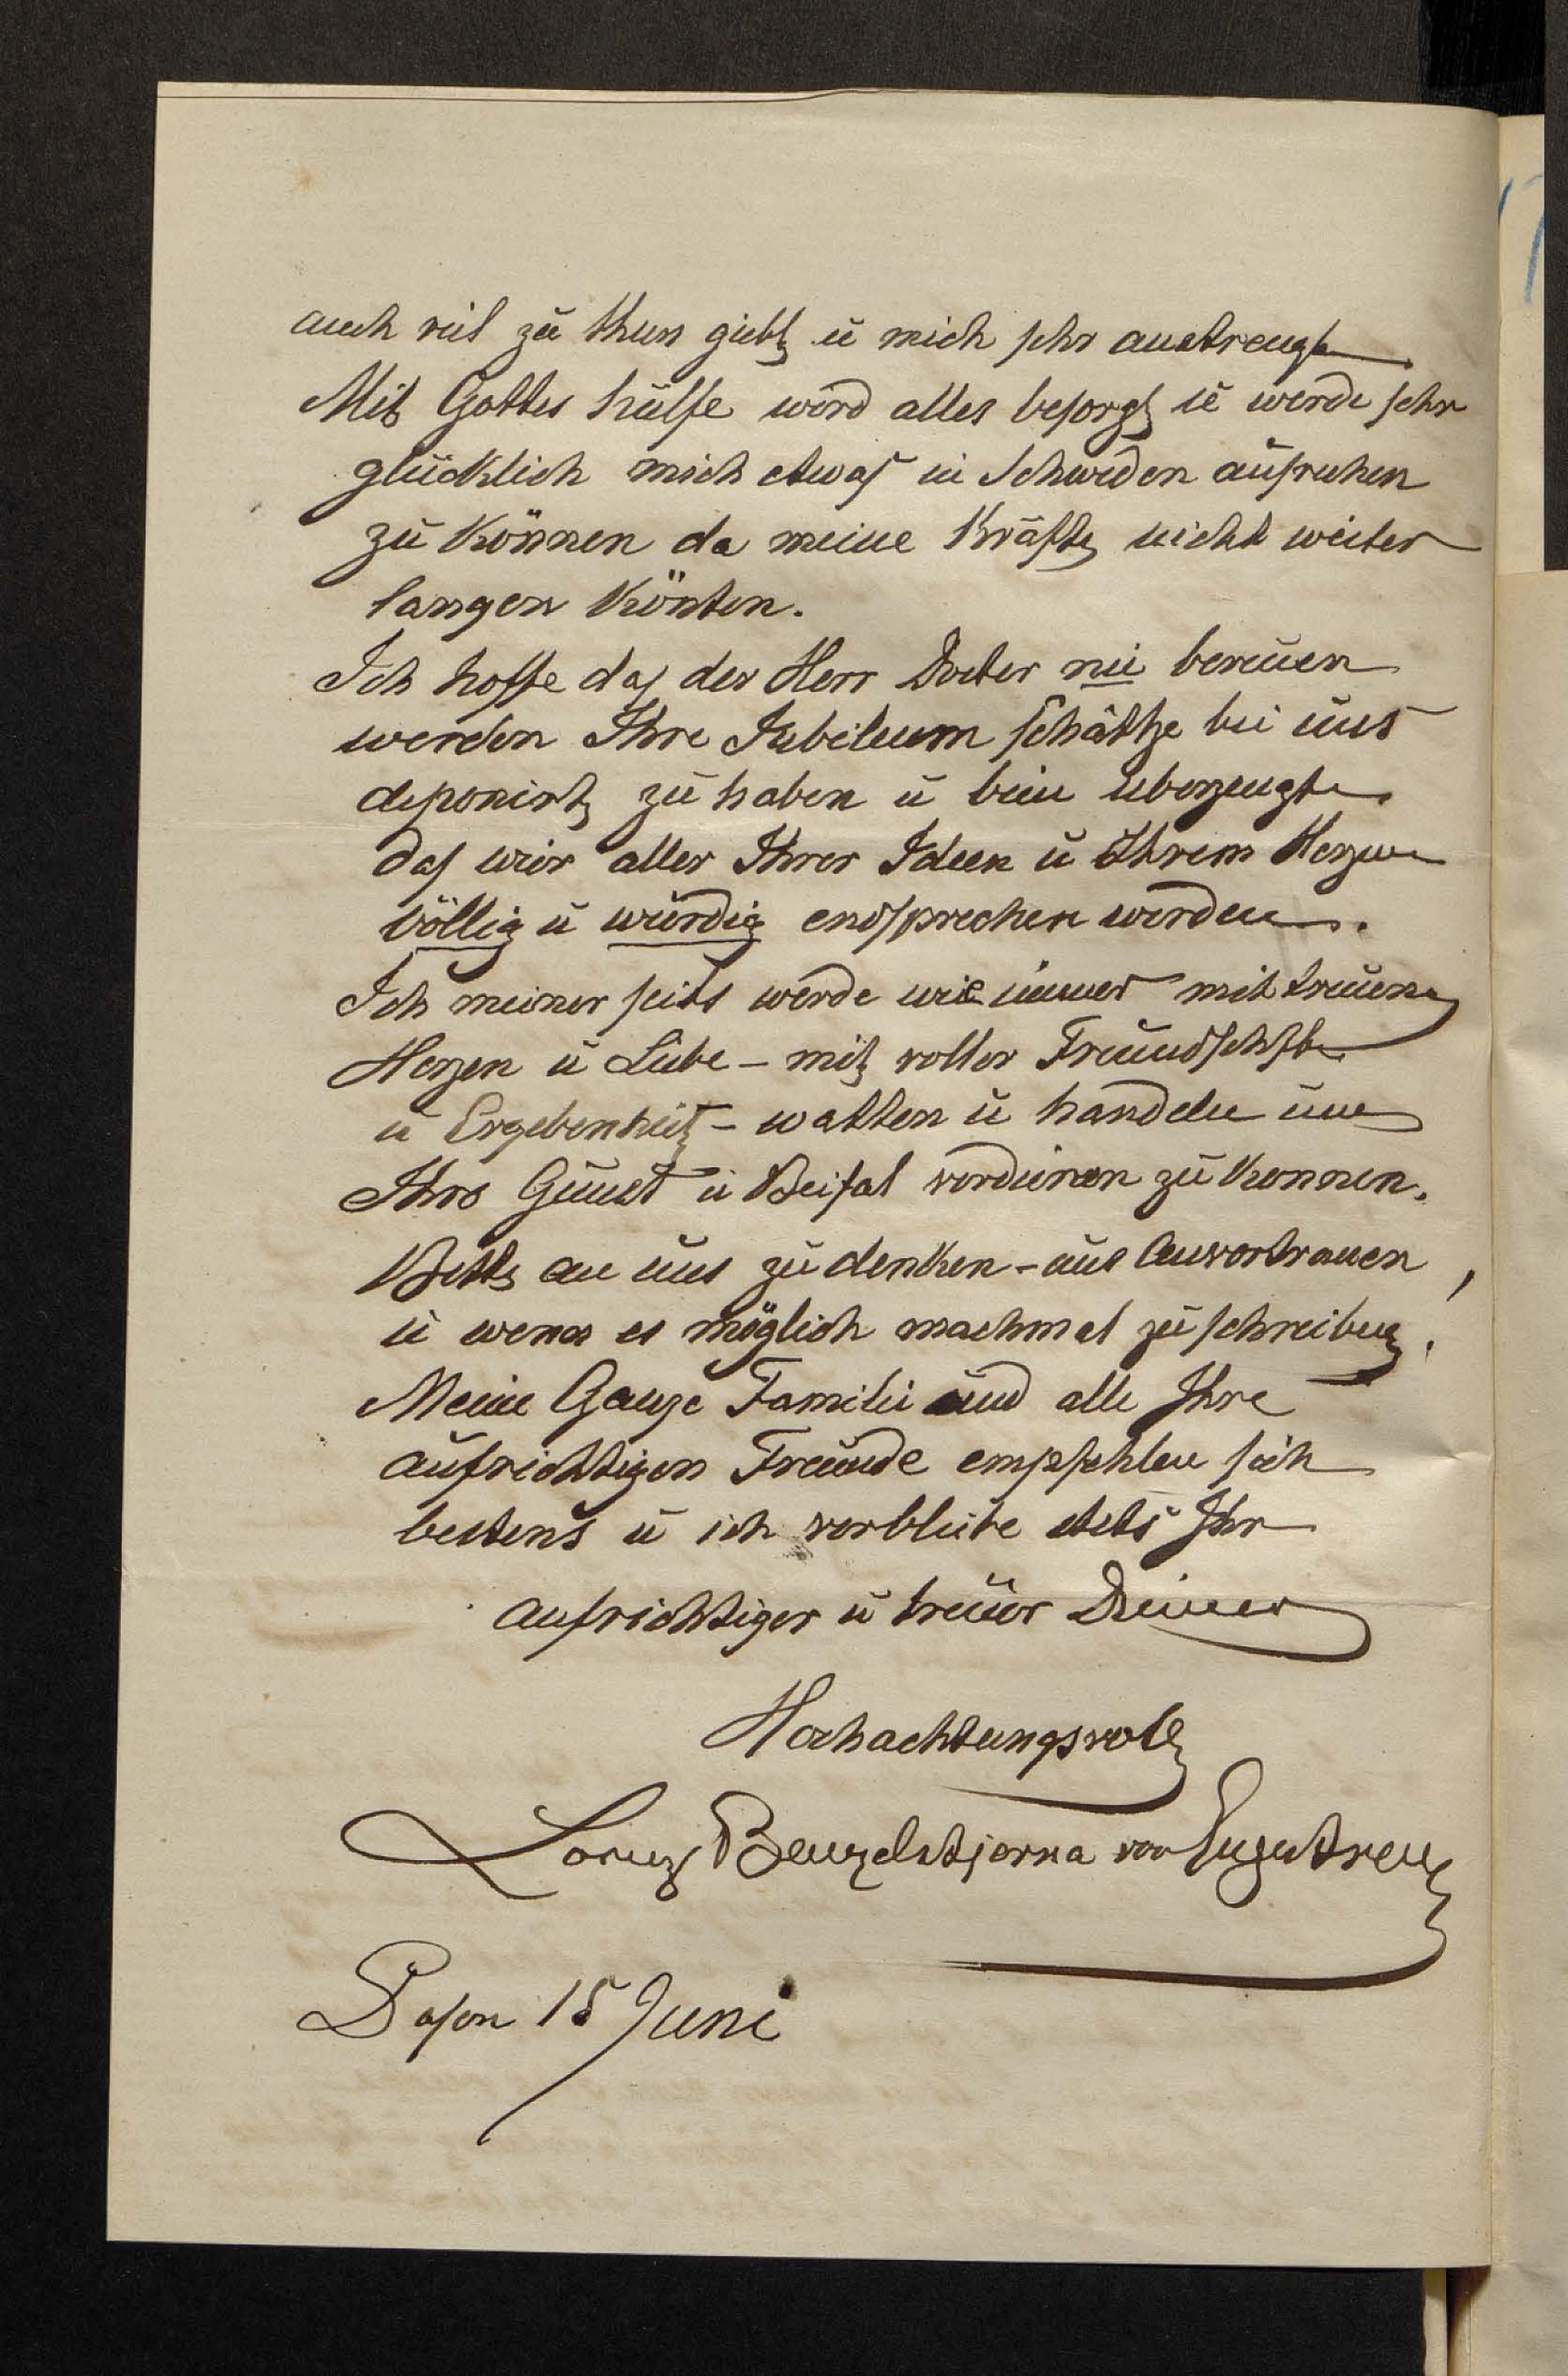 auch viel zu thun giebt u mich sehr anstrengt
Mit Gottes hülfe wird alles besorgt u werde sehr
glücklich mich etwas in Schweden ausruhen
zu können da meine Kräfte nicht weiter
langen könten.
Ich hoffe das der Herr Docter nie bereuen
werden Ihre Jubileum schätze bei uns
deponirt zu haben u bein uberzeugt
das wir aller Ihrer Ideen u Ihrem Herzen
völlig u würdig endsprechen werden.
Ich meiner seits werde wie immer mit treuen
Herzen u Liebe – mit voller Freundschaft
u Ergebenheit – walten u handeln um
Ihre Gunst u Beifal verdienen zu konnen.
Bitte an uns zu denken – uns anvertrauen
u wenn es möglich machmal zu schreiben!
Meine Ganze Familie und alle Ihre
aufrichtigen Freunde empfehlen sich
bestens u ich verbleibe stets Ihr
aufrichtiger u treuer Diener
Hochachtungsvoll
Lorenz Benzelstjerna von Engestrem
Posen 15 Juni